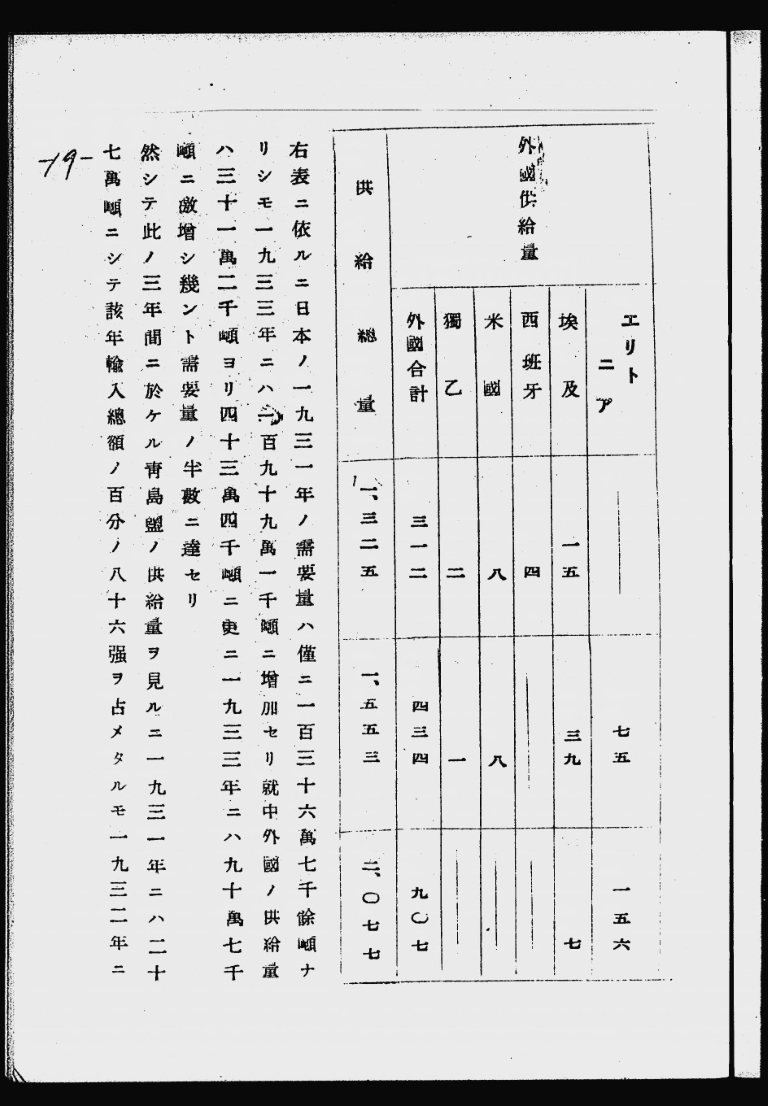 外國供給量
エリトニア ―― 七五 一五六
埃及 一五 三九 七
西班牙 四 ―― ――
米國 八 八 ――
獨乙 二 一 ――
外國合計 三一二 四三四 九〇七
供給總量 一、三二五 一、五五三 二、〇七七
右表ニ依ルニ日本ノ一九三一年ノ需要量ハ僅ニ一百三十六萬七千餘噸ナ
リシモ一九三三年ニハ一百九十九萬一千噸ニ增加セリ就中外國ノ供給量
ハ三十一萬二千噸ヨリ四十三萬四千噸ニ更ニ一九三三年ニハ九十萬七千
噸ニ激增シ幾ント需要量ノ半數ニ達セリ
然シテ此ノ三年間ニ於ケル靑島鹽ノ供給量ヲ見ルニ一九三一年ニハ二十
七萬噸ニシテ該年輸入總額ノ百分ノ八十六强ヲ占メタルモ一九三二年ニ
-19-